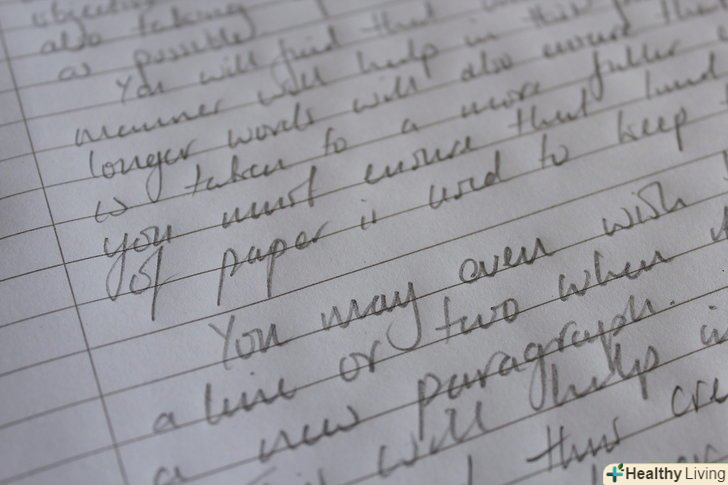 also taking
as possible
You will find that
manner will help in this
longer words will also ensure
is taken to a more fuller
you must ensure that
of paper is used to keep
You may even wish
a line or two when
a new paragraph.
will help
this cre
Healthy Living